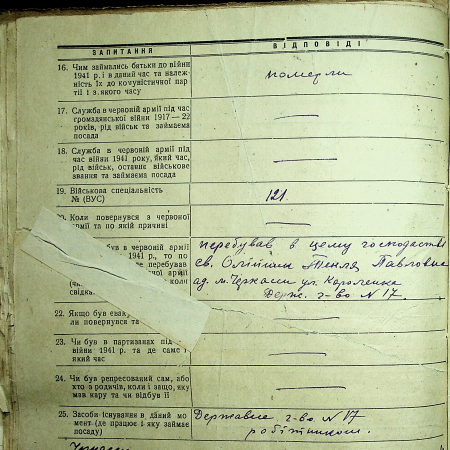 ЗАПИТАННЯ
ВІДПОВІДІ
16. Чим займались батьки до війни
1941 р. і в даний час та належ-
ність їх до комуністичної пар-
тії і з якого часу
померли
17. Служба в червоній армії під час
громадянської війни 1917 — 22
років, рід військ та займаєма
посада
18. Служба в червоній армії під
час війни 1941 року, який час,
рід військ, останнє військове
звання та займаєма посада
19. Військова спеціальність
№ (ВУС)
121.
20. Коли повернувся з червоної
армії та по якій причині
був в червоній армії
1941 р., то по
перебував
армії
коли
свідка
перебував в цьому господастві
св. Олійник Текля Павловна
ад. м. Черкаси ул. Короленка
Держ. г-во N 17
22. Якщо був
ли повернувся та
23. Чи був в партизанах під
війни 1941 р. та де саме і
який час
24. Чи був репресований сам, або
хто з родичів, коли і защо, яку
мав кару та чи відбув її
25. Засоби існування в даний мо-
мент (де працює і яку займає
посаду)
Державне г-во N 17
робітником.